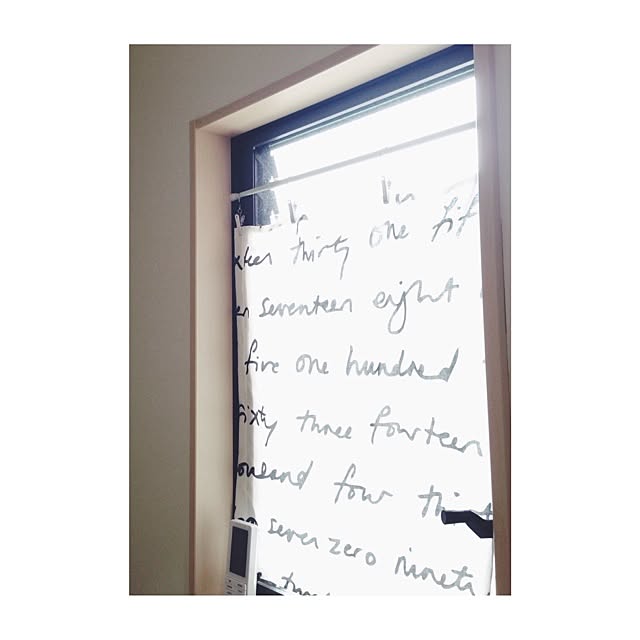 thirty one fif
seventeen eight
five one hundred
sixty three fourteen
ousand four thi
seven zero nineti